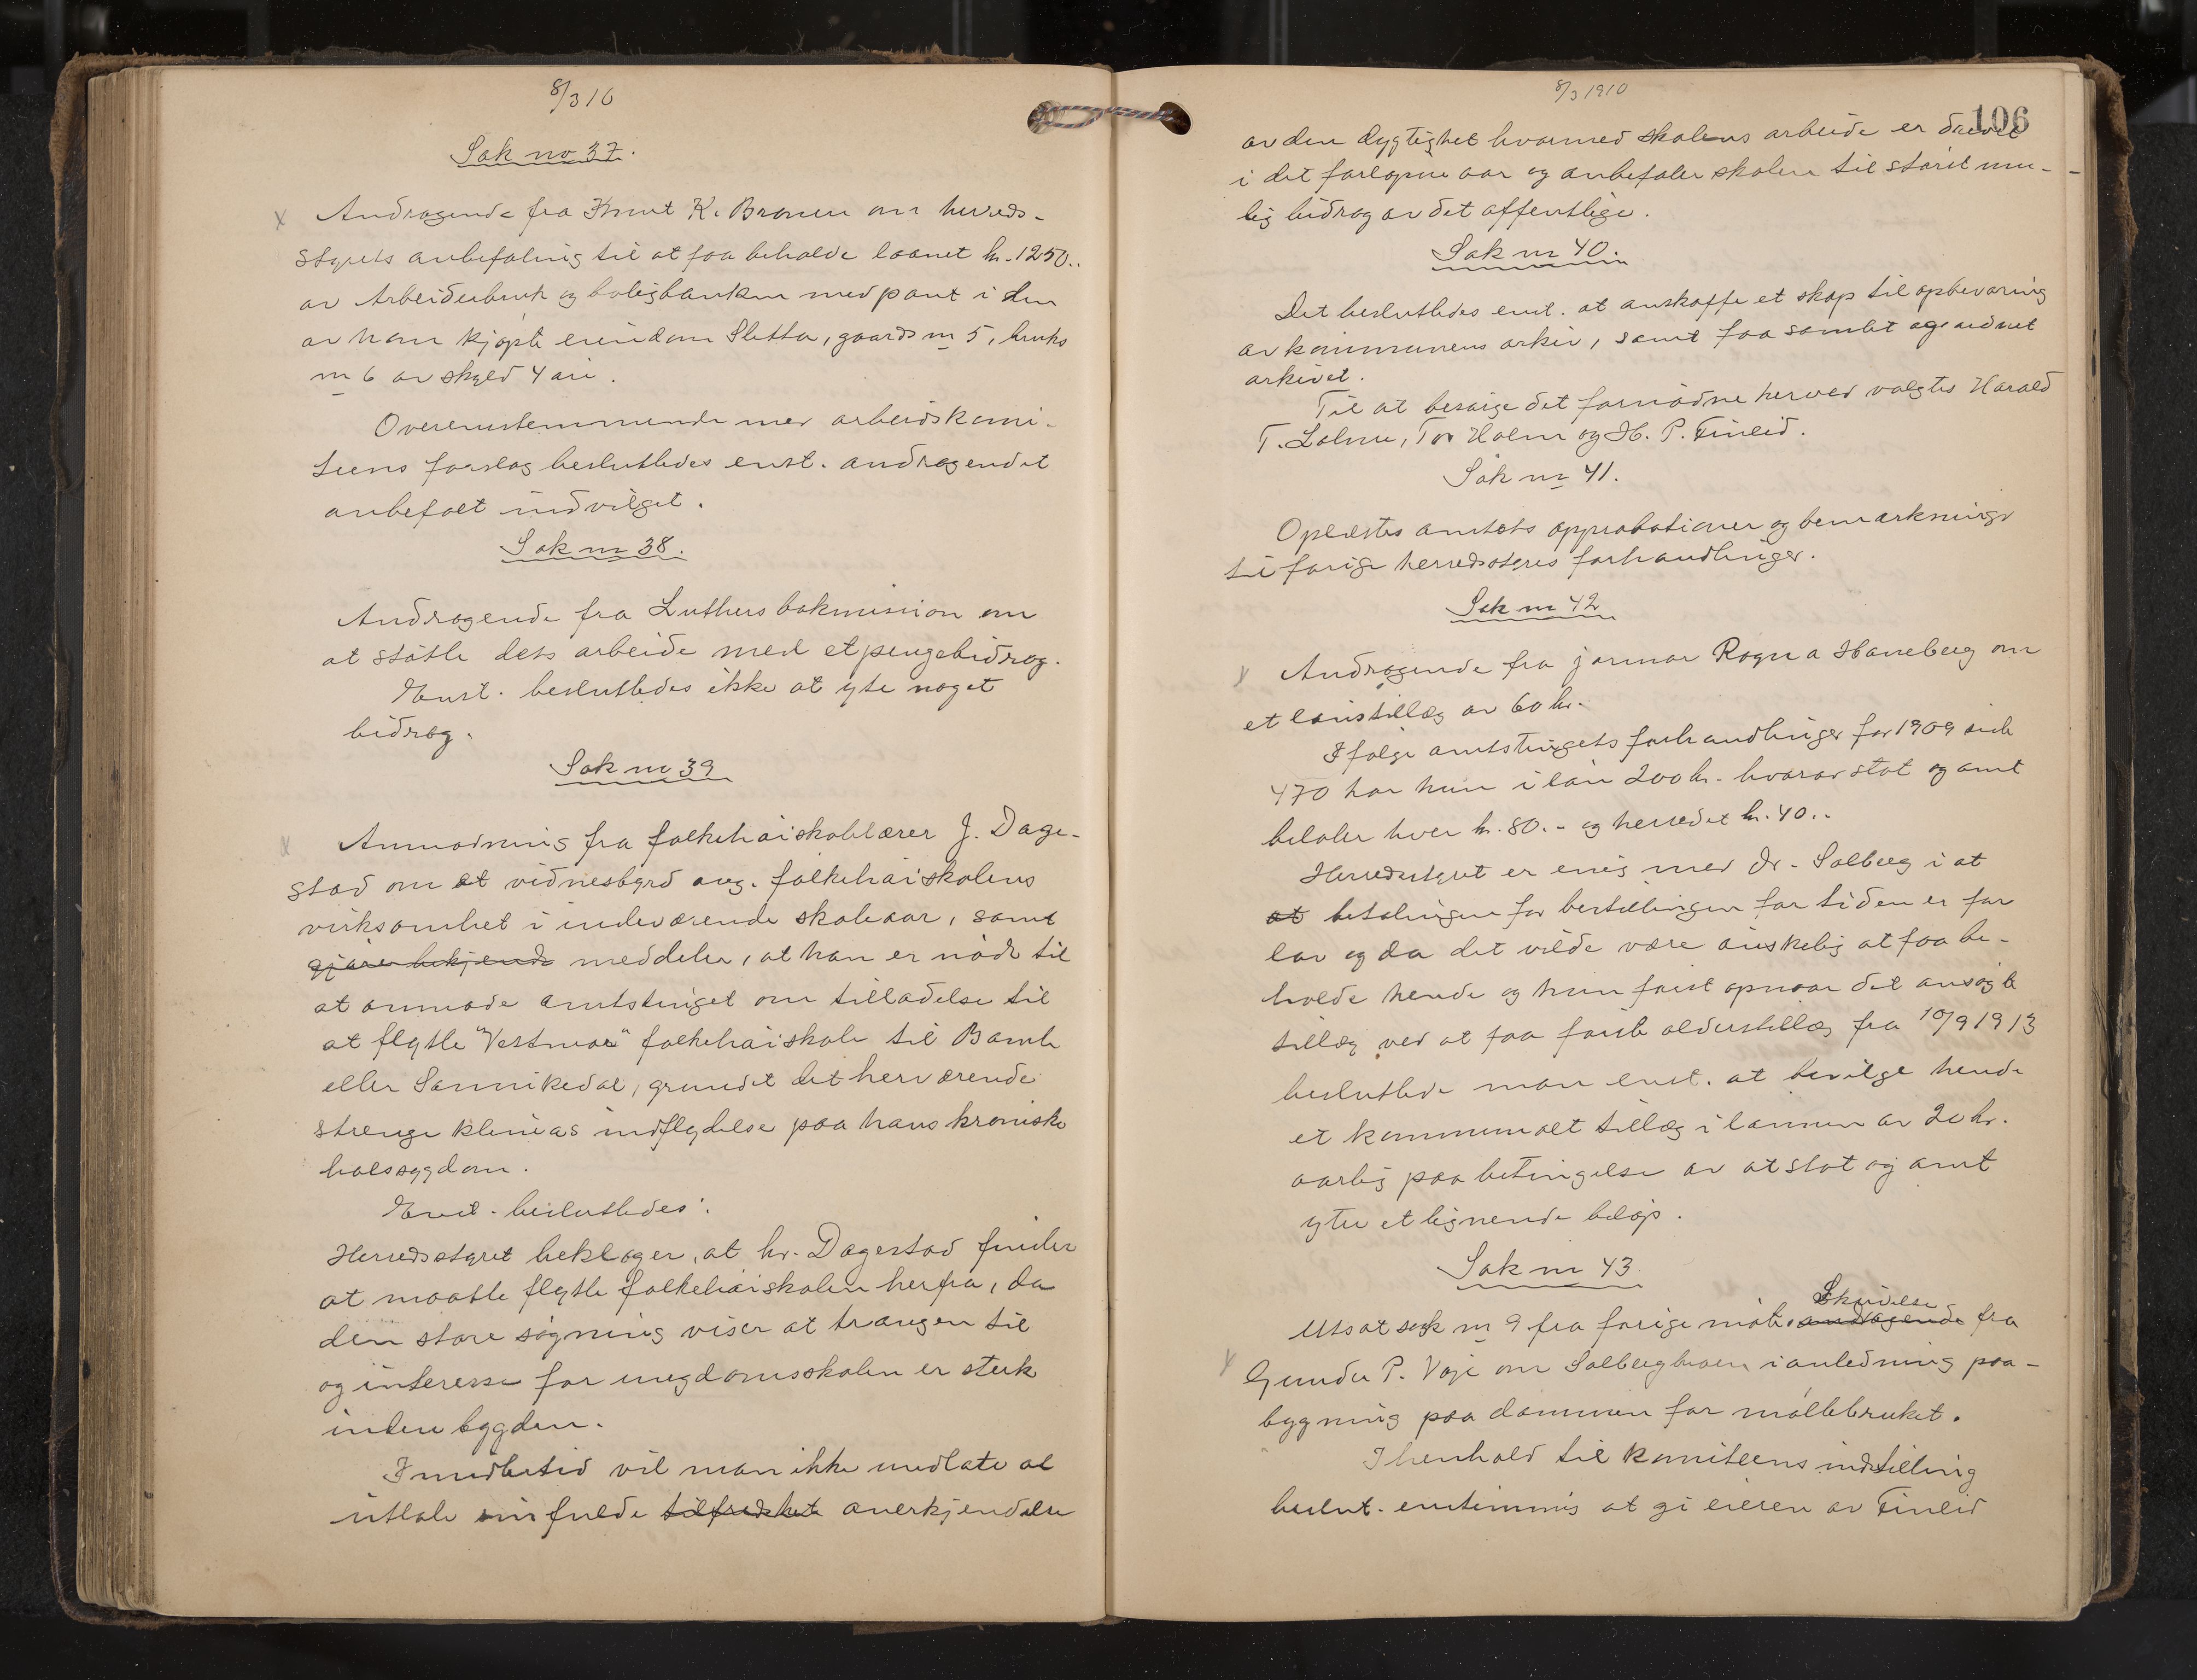 8/3 10
Sak no 37.
x Andragende fra Knut K. Bronen om herreds-
styrets anbefaling til at faa beholde laanet kr. 1250..
av Arbeiderbruk og boligbanken med pant i den
av ham kjøpte eiendom Sletta, gaards nr 5, bruks
nr 6 av skyld 4 øre.
Overenstemmende med arbeidskomi-
teens forslag besluttedes enst. andragendet
anbefalt indvilget.
Sak nr 38.
Andragende fra Luthers bokmission om
at støtte dets arbeide med et pengebidrag.
Enst. besluttedes ikke at yte noget
bidrag.
Sak nr 39
x Anmodning fra folkehøiskolelærer J. Dage-
stad om et vidnesbyrd ang. folkehøiskolens
virksomhet i indeværende skoleaar, samt
gjører bekjendt meddeler, at han er nødt til
at anmode amtstinget om tilladelse til
at flytte "Vestmar" folkehøiskole til Bamle
eller Sannikedal, grundet det herværende
strenge klimas indflydelse paa hans kroniske
halssygdom.
Enst. besluttedes:
Herredsstyret beklager, at hr. Dagestad finder
at maatte flytte folkehøiskolen herfra, da
den store søgning viser at trangen til
og interesse for ungdomsskolen er sterk
inden bygden.
Imidlertid vil man ikke undlate at
uttale sin fulde tilfredshet anerkjendelse
8/3 1910
106
av den dygtighet hvormed skolens arbeide er drevet
i det forløpne aar og anbefaler skolen til størst mu-
lig bidrag av det offentlige.
Sak nr 40.
Det besluttedes enst. at anskaffe et skap til opbevaring
av kommunens arkiv, samt faa samlet og ordnet
arkivet.
Til at besørge det fornødne herved valgtes Harald
T. Lolme, Tor Holm og H. P. Finlid.
Sak nr 41.
Oplæstes amtets approbationer og bemærkninger
til forige herredsstyres forhandlinger.
Sak nr 42
x Andragende fra jormor Ragna Haneberg om
et lønstillæg av 60 kr.
Ifølge amtstingets forhandlinger for 1909 side
470 har hun i løn 200 kr. hvorav stat og amt
betaler hver kr. 80.- og herredet kr. 40..
Herredsstyret er enig med dr. Solberg i at
at betalingen for bestillingen for tiden er for
lav og da det vilde være ønskelig at faa be-
holde hende og hun først opnaar det ansøgte
tillæg ved at faa første alderstillæg fra 10/9 1913
besluttede man enst. at bevilge hende
et kommunalt tillæg i lønnen av 20 kr.
aarlig paa betingelse av at stat og amt
yter et lignende beløp.
Sak nr 43
Skrivelse
Utsat sak nr 9 fra forige møte andragende fra
x Gunder P. Voje om Solbergbroen i anledning paa-
bygning paa dammen for møllebruket.
I henhold til komiteens indstilling
beslut. enstemmig at gi eieren av Finlid